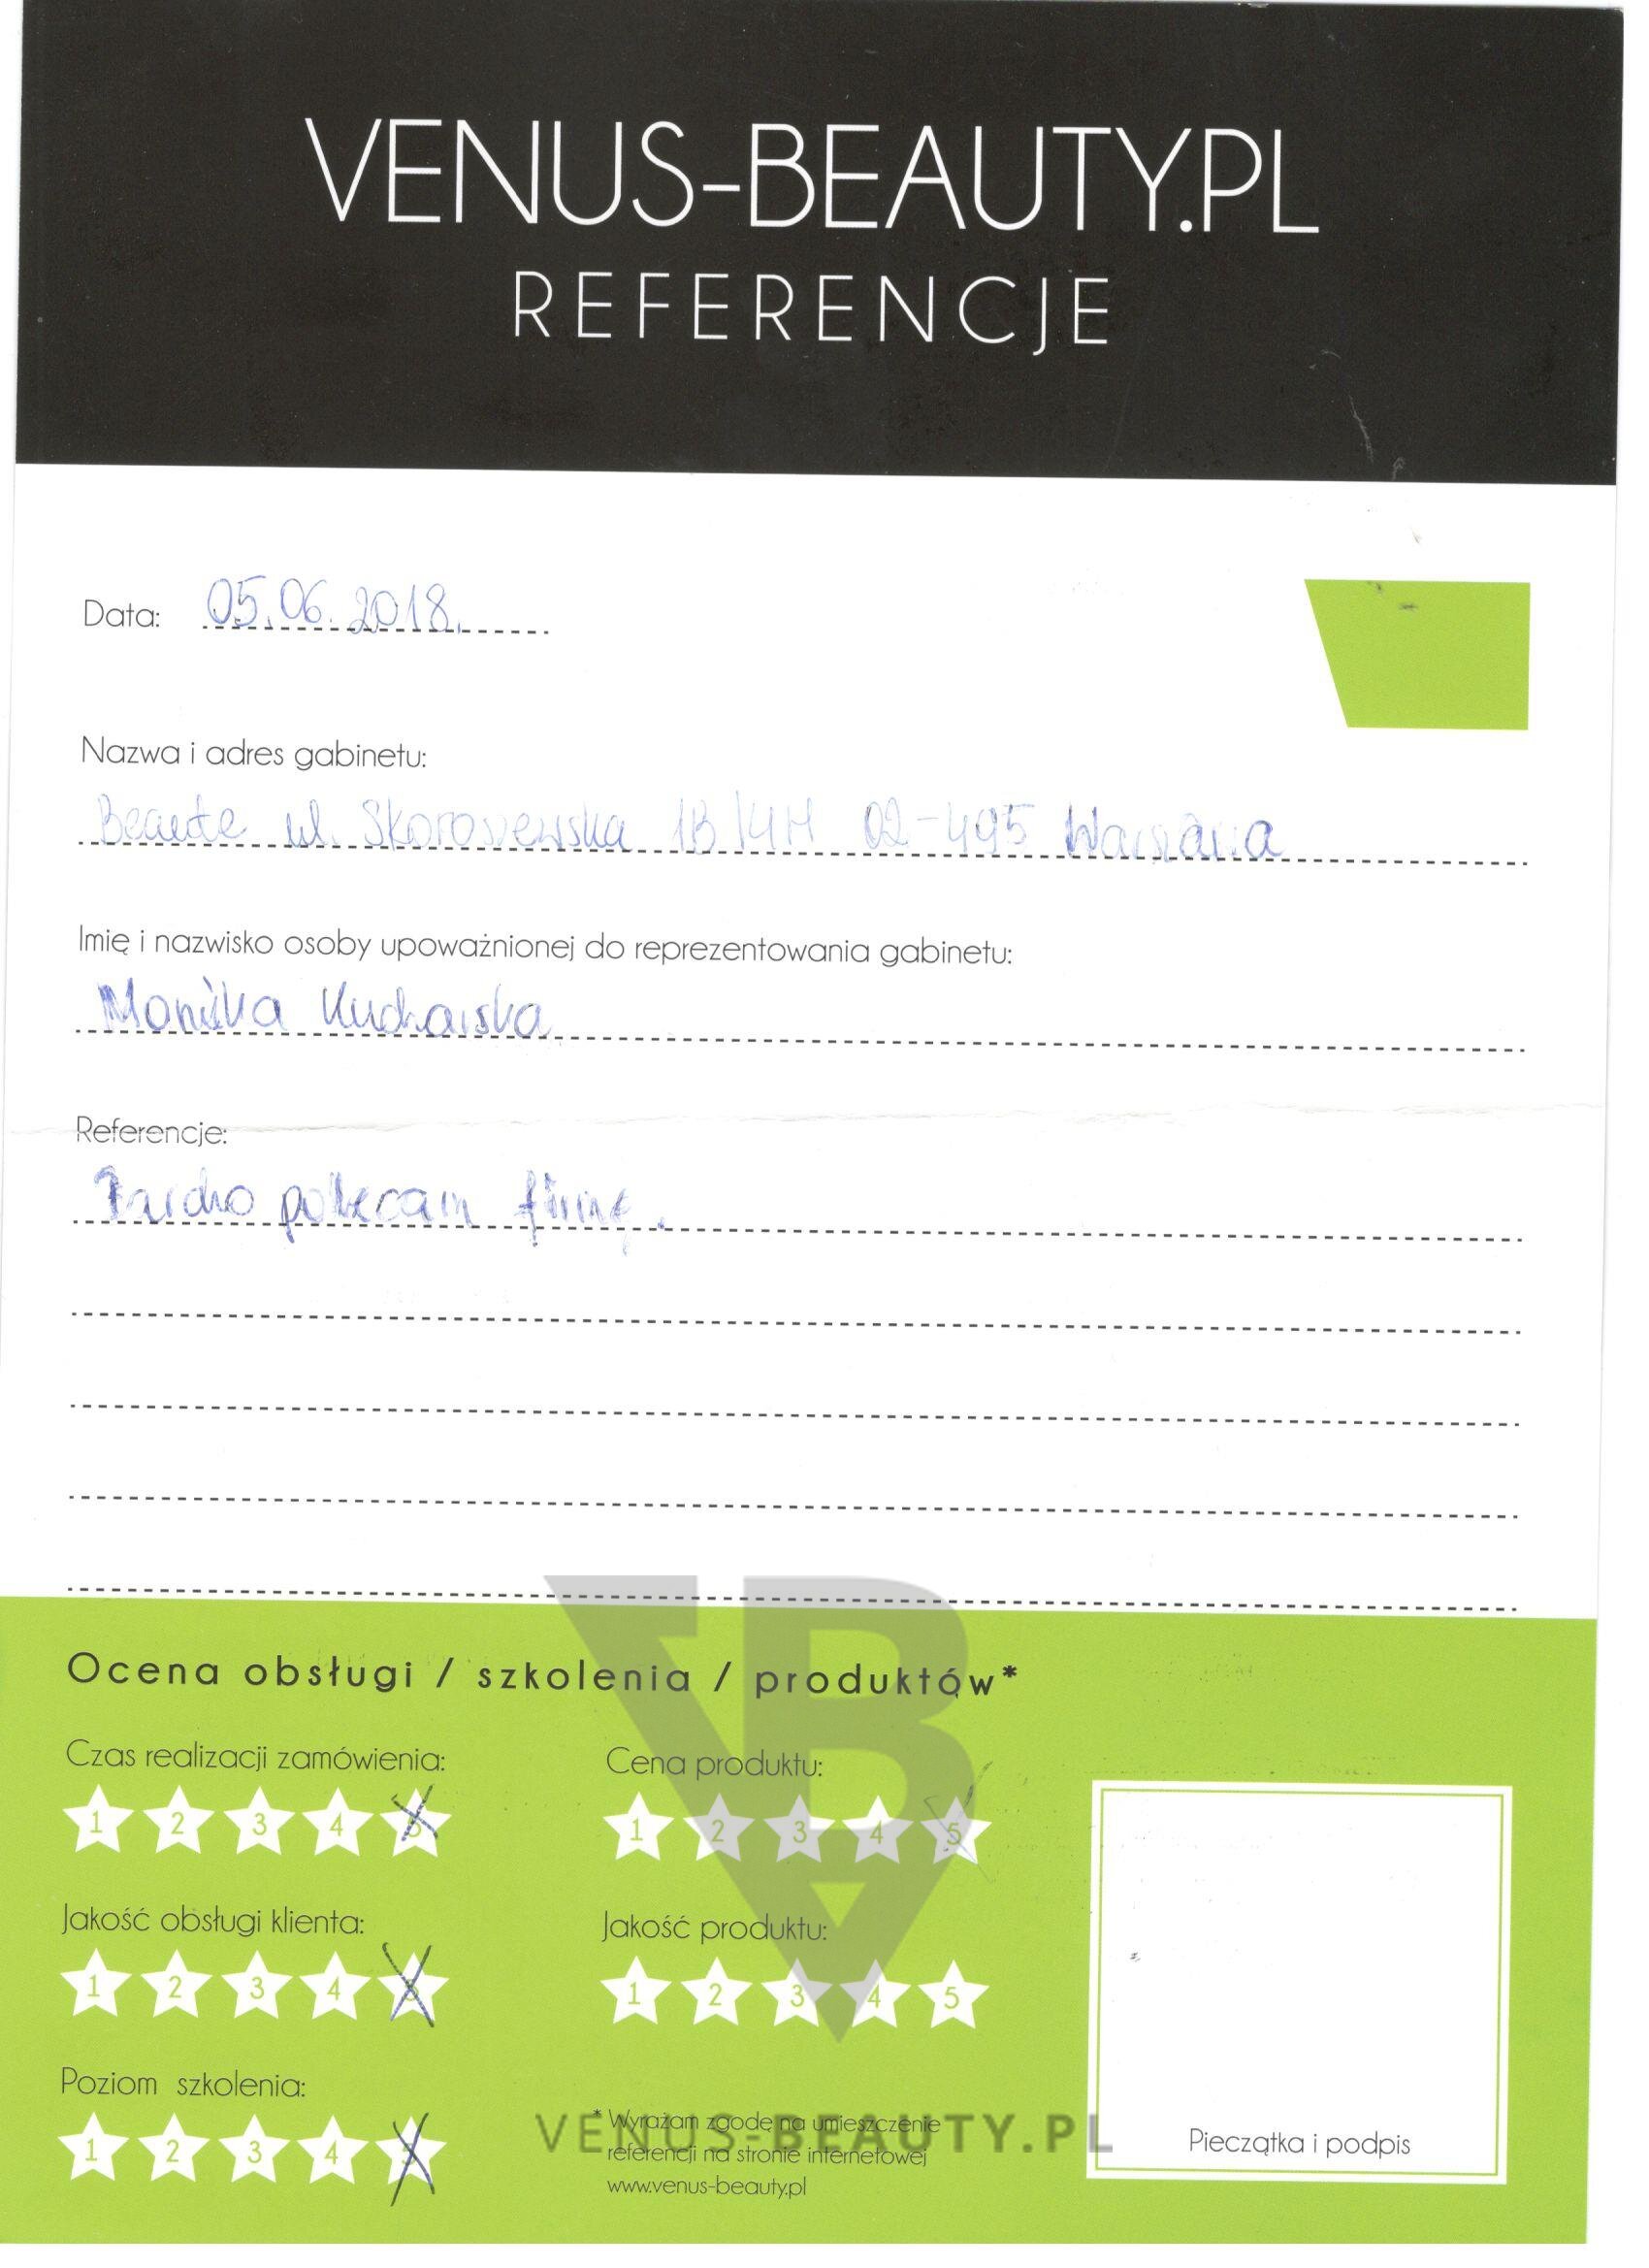 VENUS-BEAUTY.PL
REFERENCJE
Data: 05.06.2018.
Nazwa i adres gabinetu:
Beaute ul. Skoroszewska 1B/4H 02-495 Warszawa
Imię i nazwisko osoby upoważnionej do reprezentowania gabinetu:
Monika Kucharska
Referencje:
Bardzo polecam firmę.
Ocena obsługi / szkolenia / produktów*
Czas realizacji zamówienia:
1 2 3 4 5
Cena produktu:
1 2 3 4 5
Jakość obsługi klienta:
1 2 3 4 5
Jakość produktu:
1 2 3 4 5
Poziom szkolenia:
1 2 3 4 5
* Wyrażam zgodę na umieszczenie
referencji na stronie internetowej
www.venus-beauty.pl
VENUS-BEAUTY.PL
Pieczątka i podpis